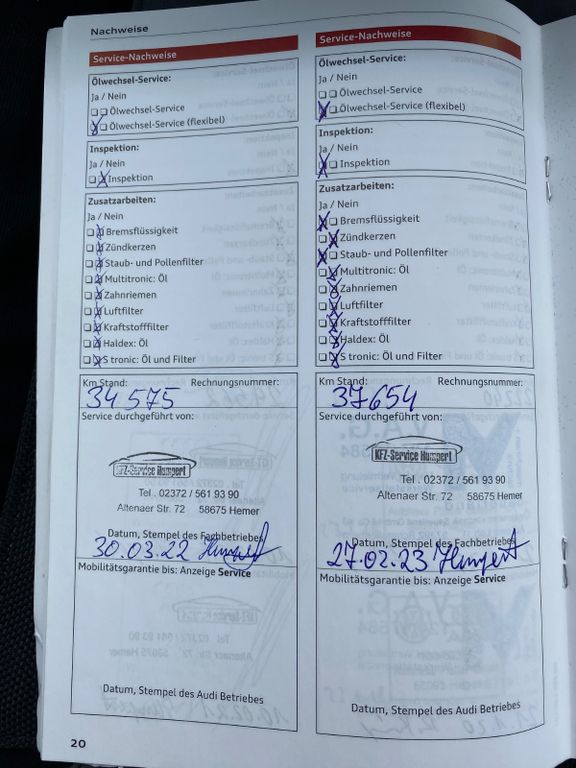 Nachweise
Service-Nachweise
Ölwechsel-Service:
Ja / Nein
Ölwechsel-Service
Ölwechsel-Service (flexibel)
Inspektion:
Ja / Nein
Inspektion
Zusatzarbeiten:
Ja / Nein
Bremsflüssigkeit
Zündkerzen
Staub- und Pollenfilter
Multitronic: Öl
Zahnriemen
Luftfilter
Kraftstofffilter
Haldex: Öl
S tronic: Öl und Filter
Km Stand: Rechnungsnummer:
34 575
Service durchgeführt von:
KFZ-Service Humpert
Tel. 02372 / 561 93 90
Altenaer Str. 72 58675 Hemer
Datum, Stempel des Fachbetriebes
30.03.22 Humpert
Mobilitätsgarantie bis: Anzeige Service
Datum, Stempel des Audi Betriebes
20
Service-Nachweise
Ölwechsel-Service:
Ja / Nein
Ölwechsel-Service
Ölwechsel-Service (flexibel)
Inspektion:
Ja / Nein
Inspektion
Zusatzarbeiten:
Ja / Nein
Bremsflüssigkeit
Zündkerzen
Staub- und Pollenfilter
Multitronic: Öl
Zahnriemen
Luftfilter
Kraftstofffilter
Haldex: Öl
S tronic: Öl und Filter
Km Stand: Rechnungsnummer:
37654
Service durchgeführt von:
KFZ-Service Humpert
Tel. 02372 / 561 93 90
Altenaer Str. 72 58675 Hemer
Datum, Stempel des Fachbetriebes
27.02.23 Humpert
Mobilitätsgarantie bis: Anzeige Service
Datum, Stempel des Audi Betriebes